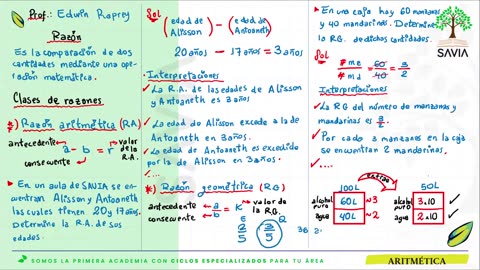 Prof.: Edwin Raprey
Razón
Es la comparación de dos
cantidades mediante una ope-
ración matemática.
Clases de razones
*) Razón aritmética (R.A.)
antecedente
a - b = r
valor
de la
R.A.
consecuente
En un aula de SAVIA se en-
cuentran Alisson y Antoaneth
las cuales tienen 20 y 17 años.
Determine la R.A. de sus
edades.
Sol
(edad de Alisson) - (edad de Antoaneth)
20 años - 17 años = 3 años
Interpretaciones
La R.A. de las edades de Alisson
y Antoaneth es 3 años
La edad de Alisson excede a la de
Antoaneth en 3 años.
La edad de Antoaneth es excedido
por la de Alisson en 3 años.
....
*) Razón geométrica (R.G)
antecedente
a/b = k
valor de
la R.G.
consecuente
6/2
6/3
2
3
En una caja hay 60 manzanas
y 40 mandarinas. Determine
la R.G. de dichas cantidades.
Sol
# mz / # md = 60/40 = 3/2
Interpretaciones
La R.G del número de manzanas y
mandarinas es 3/2.
Por cada 3 manzanas en la caja
se encuentran 2 mandarinas.
....
100L
50L
alcohol
puro
60L
~3
alcohol
puro
3.10
agua
40L
~2
agua
2.10
SAVIA
SOMOS LA PRIMERA ACADEMIA CON CICLOS ESPECIALIZADOS PARA TU ÁREA
ARITMÉTICA